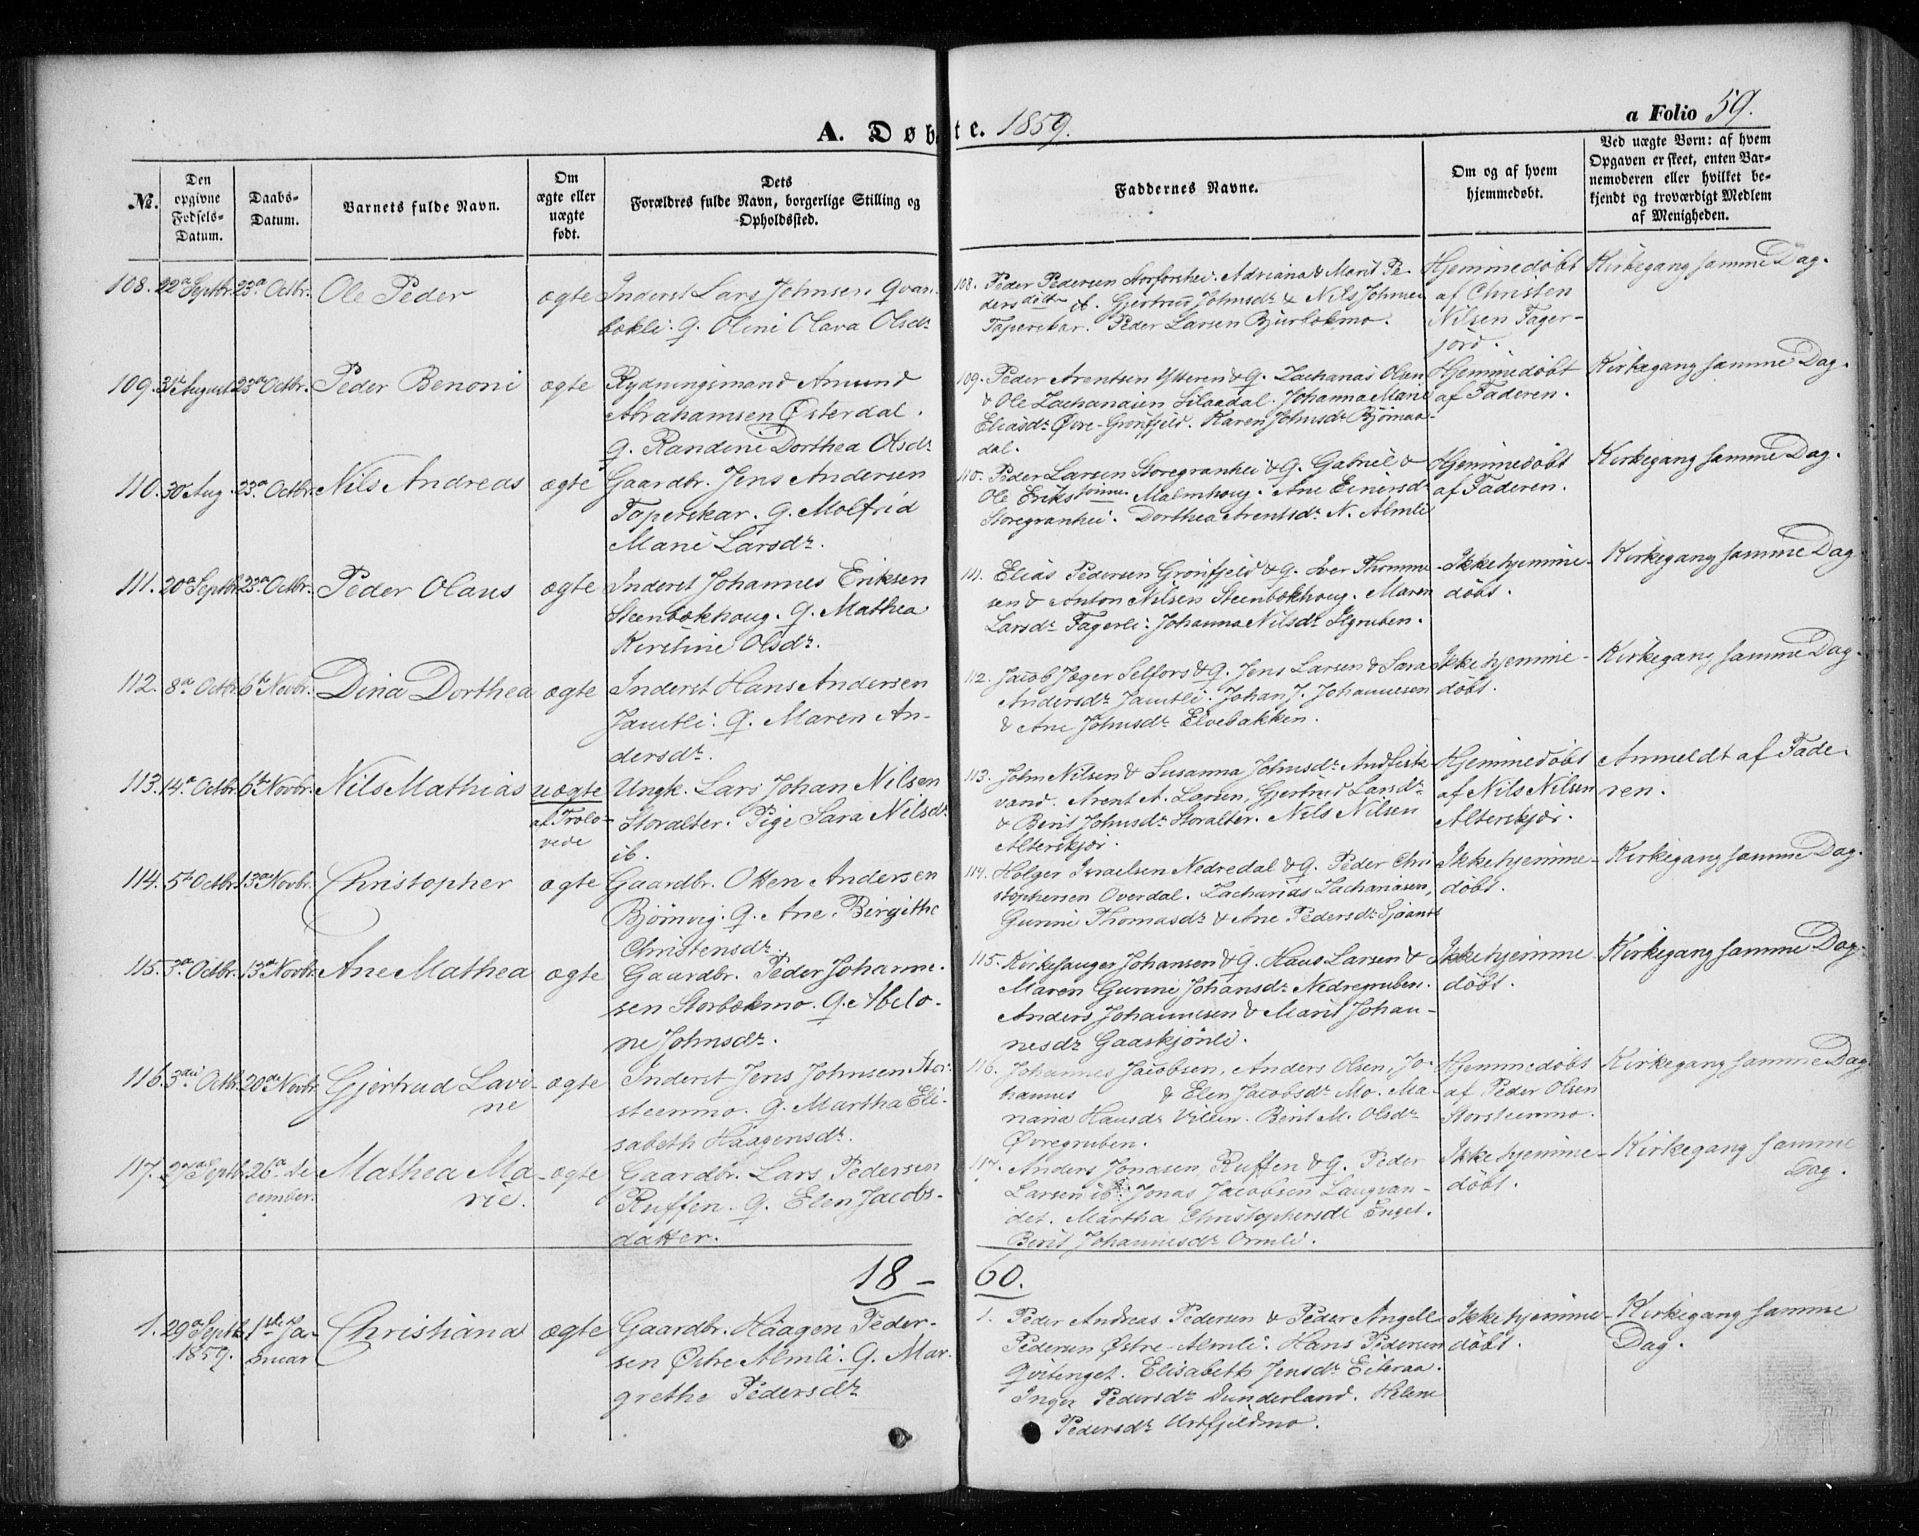 A. Døbte. 1859.
a Folio 59.
No.
Den opgivne Fødsels-Datum.
Daabs-Datum.
Barnets fulde Navn.
Om ægte eller uægte født.
Dets Forældres fulde Navn, borgerlige Stilling og Opholdssted.
Faddernes Navne.
Om og af hvem hjemmedøbt.
Ved uægte Børn: af hvem Opgaven er skeet, enten Barnemoderen eller hvilket bekjendt og troværdigt Medlem af Menigheden.
108. 22de Septbr. 23de Octbr. Ole Peder ægte Inderst Lars Johnsen Qvan-
bækli. G. Olini Olava Olsdr.
108. Peder Pedersen Storforshei. Adriana & Marit Pe-
dersdtr ib. Gjertrud Johnsdr & Nils Johnsen
Taperskar. Peder Larsen Bjurbækmo.
Hjemmedøbt
af Christen
Nilsen Fager-
jord.
Kirkegang samme Dag.
109. 31te August 23de Octbr. Peder Benoni ægte Rydningsmand Amund
Abrahamsen Østerdal.
G. Randine Dorthea Olsdr
109. Peder Arentsen Ytteren & G. Zacharias Olsen
& Ole Zachariasen Lilaadal. Johanna Marie
Eliasdr Øvre-Grønfjeld. Karen Johnsdr Bjørnaa-
dal.
Hjemmedøbt
af Faderen.
Kirkegang samme Dag.
110. 30te Aug. 23de Octbr. Nils Andreas ægte Gaardbr. Jens Andersen
Taperskar. G. Molfrid
Marie Larsdr.
110. Peder Larsen Storegranhei & G. Gabriel &
Ole Erikssønner Malmhoug. Ane Einersdr
Storegranhei. Dorthea Arentsdr N. Almli
Hjemmedøbt
af Faderen.
Kirkegang samme Dag.
111. 20de Septbr. 23de Octbr. Peder Olaus ægte Inderst Johannes Eriksen
Steenbækhoug. G. Mathea
Kirstine Olsdr.
111. Elias Pedersen Grønfjeld & G. Iver Thomme-
sen & Anton Nilsen Steenbækhoug. Maren
Larsdr Fagerli. Johanna Nilsdr Ilgruben.
Ikke hjemme-
døbt.
Kirkegang samme Dag.
112. 8de Octbr. 6te Novbr. Dina Dorthea ægte Inderst Hans Andersen
Jamtli. G. Maren An-
dersdr.
112. Jacob Jæger Selfors & G. Jens Larsen & Sara
Andersdr Jamtli. Johan J. Johannesen
& Ane Johnsdr Elvebakken.
Ikke hjemme-
døbt.
Kirkegang samme Dag.
113. 14de Octbr. 6te Novbr. Nils Mathias uægte
af Trolo-
vede
Ungk. Lars Johan Nilsen
Storalter. Pige Sara Nilsdr
ib.
113. John Nilsen & Susanna Johnsdr Andfiske-
vand. Arent A. Larsen, Gjertrud Larsdr
& Berit Johnsdr Storalter. Nils Nilsen
Alterskjær.
Hjemmedøbt
af Nils Nilsen
Alterskjær.
Anmeldt af Fade-
ren.
114. 5te Octbr. 13de Novbr. Christopher ægte Gaardbr. Otten Andersen
Bjørnvig. G. Ane Birgithe
Christensdr.
114. Holger Israelsen Nedredal & G. Peder Chri-
stophersen Overdal. Zacharias Zachariasen,
Gurine Thomasdr & Ane Pedersdr Sjøanes
Ikke hjemme-
døbt.
Kirkegang samme Dag.
115. 3de Octbr. 13de Novbr. Ane Mathea ægte Gaardbr. Peder Johanne-
sen Storbækmo. G. Abelo-
ne Johnsdr.
115. Kirkesanger Johansen & G. Hans Larsen &
Maren Gurine Johansdr Nedregruben.
Anders Johannesen & Marit Johan-
nesdr Gaaskjønli.
Ikke hjemme-
døbt.
Kirkegang samme Dag.
116. 3die Octbr. 20de Novbr. Gjertrud Lavi-
ne
ægte Inderst Jens Johnsen Stor-
steenmo. G. Martha Eli-
sabeth Haagensdr.
116. Johannes Jacobsen, Anders Olsen, Jo-
hannes & Elen Jacobsdr Mo. Ma-
riana Hansdr Villen. Berit M. Olsdr
Øvregruben.
Hjemmedøbt
af Peder Olsen
Storsteenmo.
Kirkegang samme Dag
117. 29de Septbr. 26de De-
cember.
Mathea Ma-
rie.
ægte Gaardbr. Lars Pedersen
Ruffen. G. Elen Jacobs-
datter.
117. Anders Jonasen Ruffen & G. Peder
Larsen ib. Jonas Jacobsen Langvan-
det. Martha Christophersdr Enget.
Berit Johannesdr Ormli.
Ikke hjemme-
døbt.
Kirkegang samme
Dag.
18-60.
1. 29de Septbr.
1859.
1ste Ja-
nuar
Christiana ægte Gaardbr. Haagen Peder-
sen Østre Almli. G. Mar-
grethe Pedersdr
1. Peder Andreas Pedersen & Peder Angell
Pedersen Østre-Almli. Hans Pedersen
Qvitinget. Elisabeth Jensdr Eiteraa.
Inger Pedersdr Dunderland. Helene
Pedersdr Urtfjeldmo.
Ikke hjemme-
døbt.
Kirkegang samme
Dag.